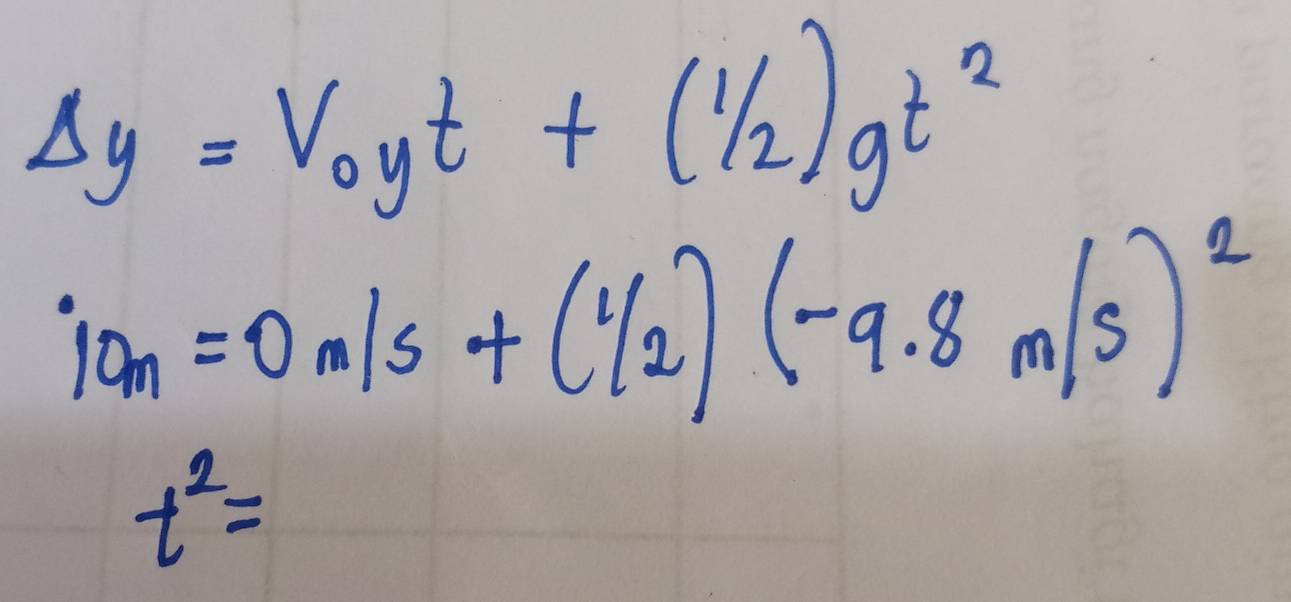 Δy = V₀yt + (1/2)gt²
10m = 0m/s + (1/2) (-9.8 m/s)²
t² =